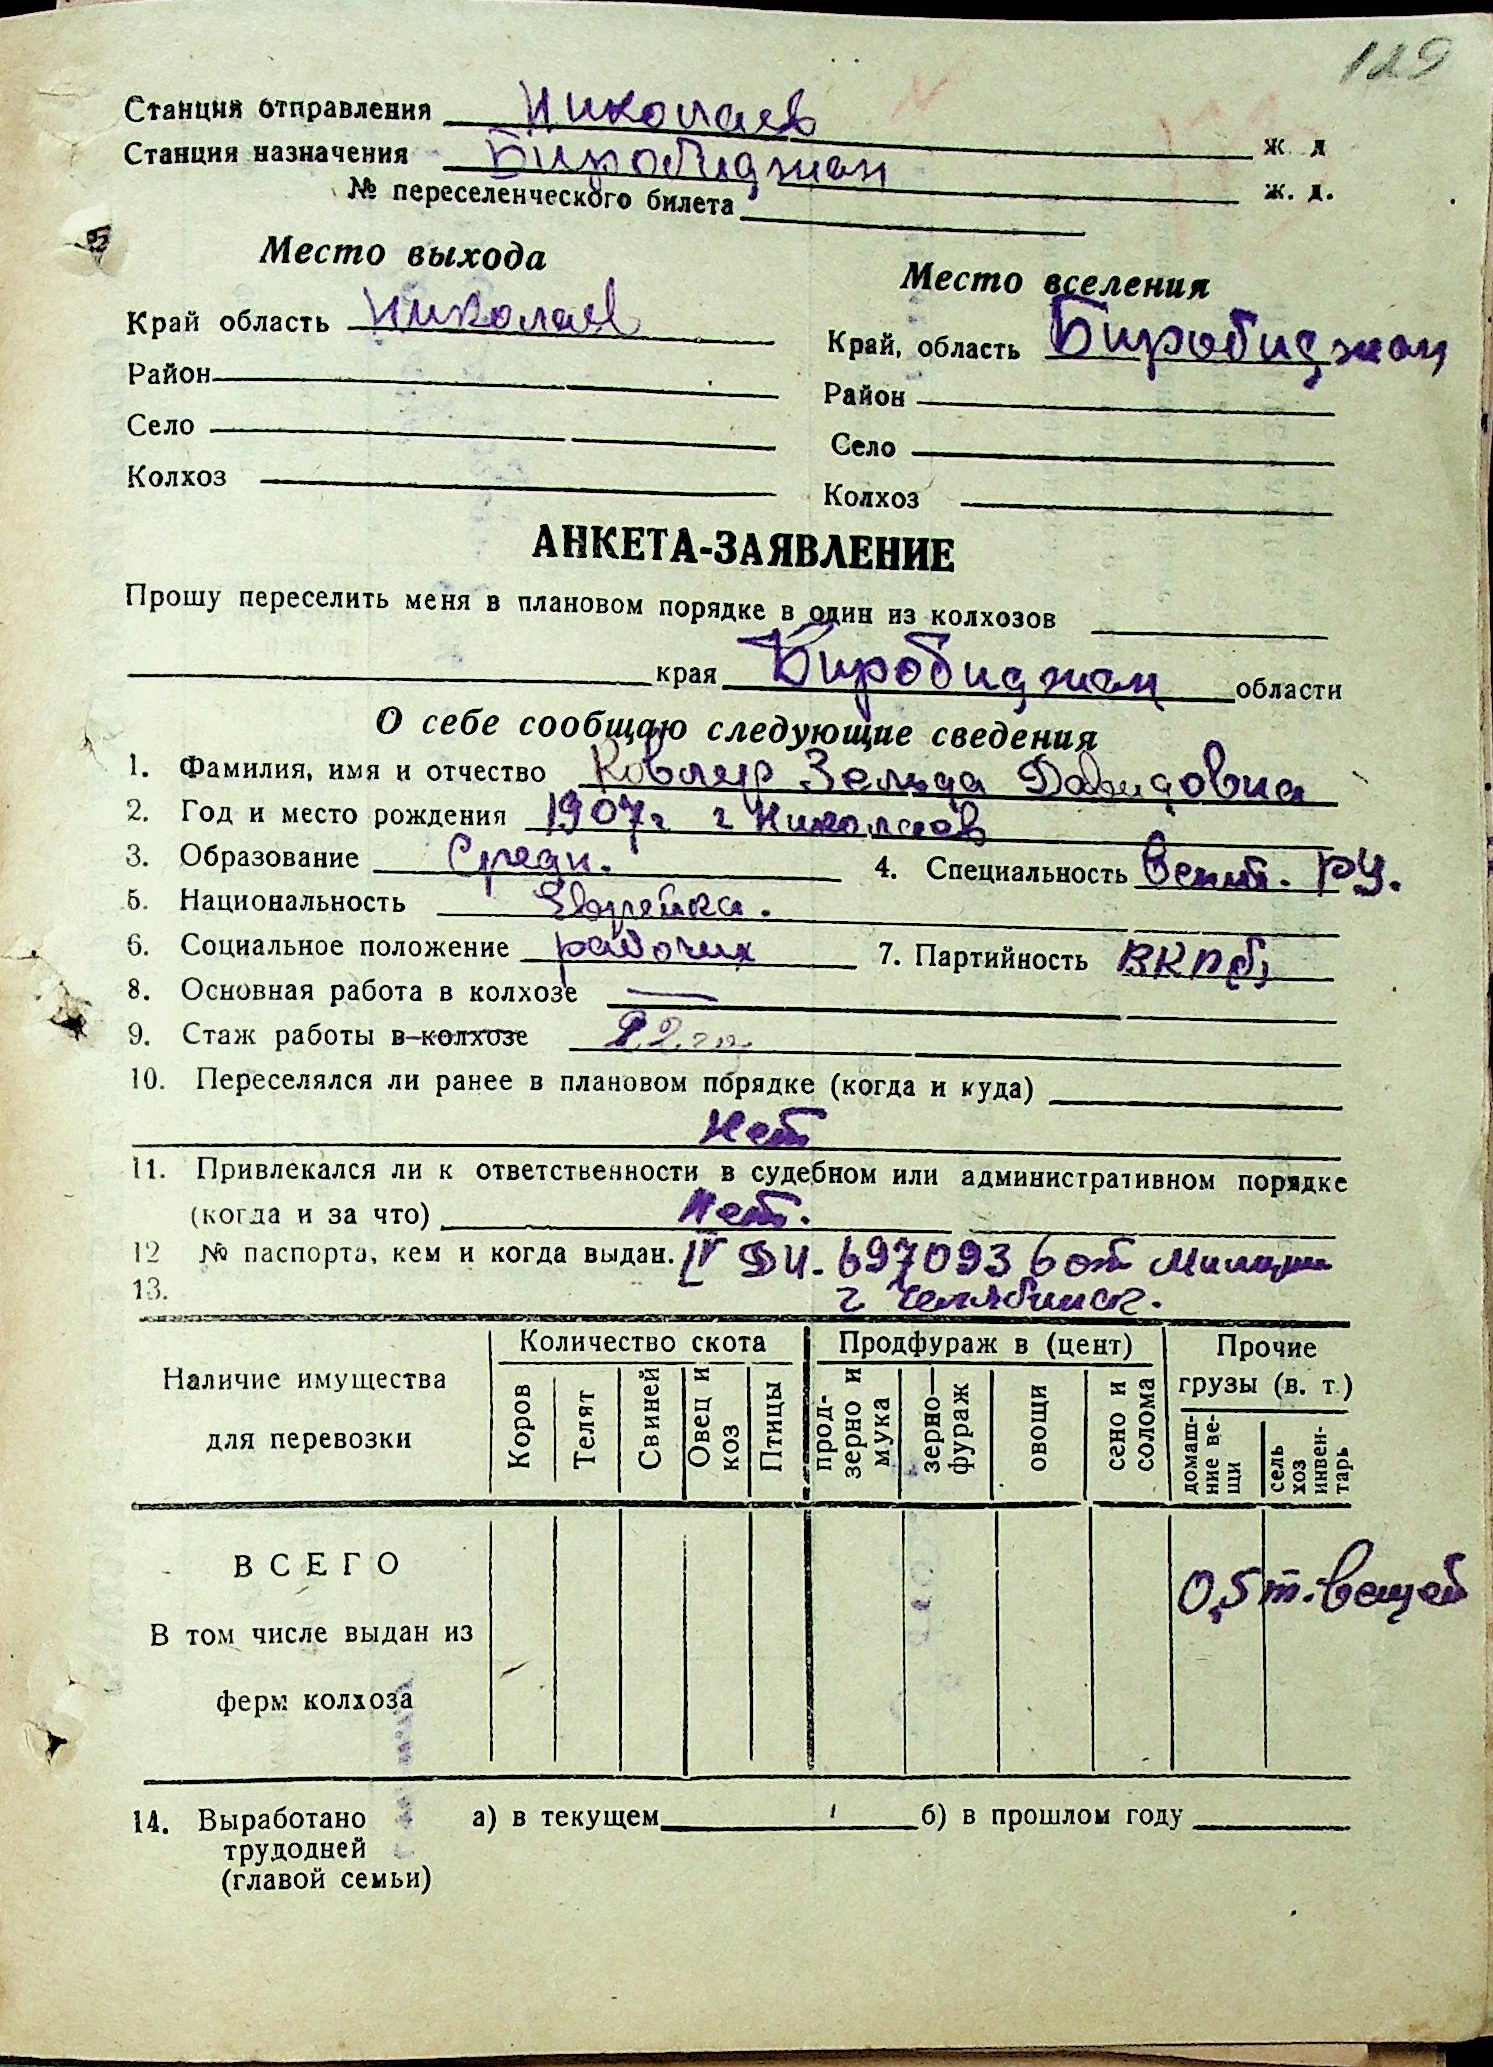 129
Станция отправления Николаев ж д
Станция назначения Биробиджан ж. д.
№ переселенческого билета
Место выхода
Место вселения
Край область Николаев
Край, область Биробиджан
Район
Район
Село
Село
Колхоз
Колхоз
АНКЕТА-ЗАЯВЛЕНИЕ
Прошу переселить меня в плановом порядке в один из колхозов
края Биробиджан области
О себе сообщаю следующие сведения
1. Фамилия, имя и отчество Ковлер Зельда Давидовна
2. Год и место рождения 1907 г г Николаев
3. Образование Средн. 4. Специальность
5. Национальность Еврейка.
6. Социальное положение рабочих 7. Партийность ВКПб)
8. Основная работа в колхозе —
9. Стаж работы в колхозе 22
10. Переселялся ли ранее в плановом порядке (когда и куда)
Нет
11. Привлекался ли к ответственности в судебном или административном порядке
(когда и за что) Нет.
12 № паспорта, кем и когда выдан. IV 697093 6 от Милиции
13. г Челябинск.
Количество скота Продфураж в (цент) Прочие грузы (в. т.)
Наличие имущества для перевозки
Коров Телят Свиней Овец и коз Птицы прод-зерно и мука зерно—фураж овощи сено и солома домаш-ние ве-щи сель хоз инвен-тарь
ВСЕГО 0,5 т. вещей
В том числе выдан из
ферм колхоза
14. Выработано а) в текущем б) в прошлом году
трудодней
(главой семьи)